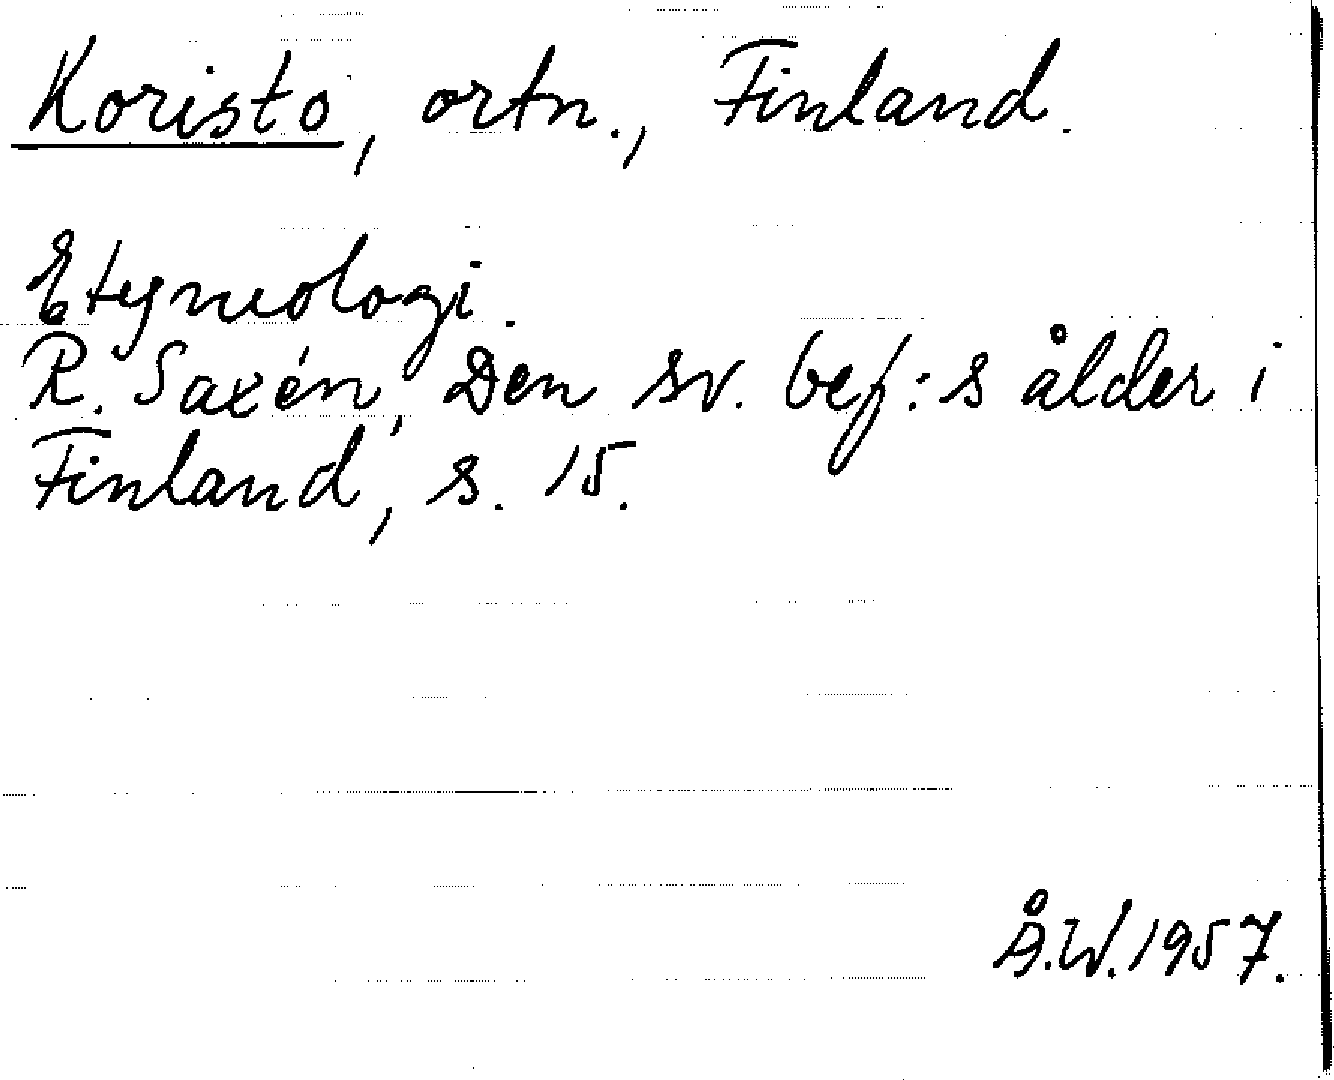 Koristo, ortn., Finland.
Etymologi.
R. Saxén, Den sv. bef:s ålder i
Finland, s. 15.
Å.W. 1957.